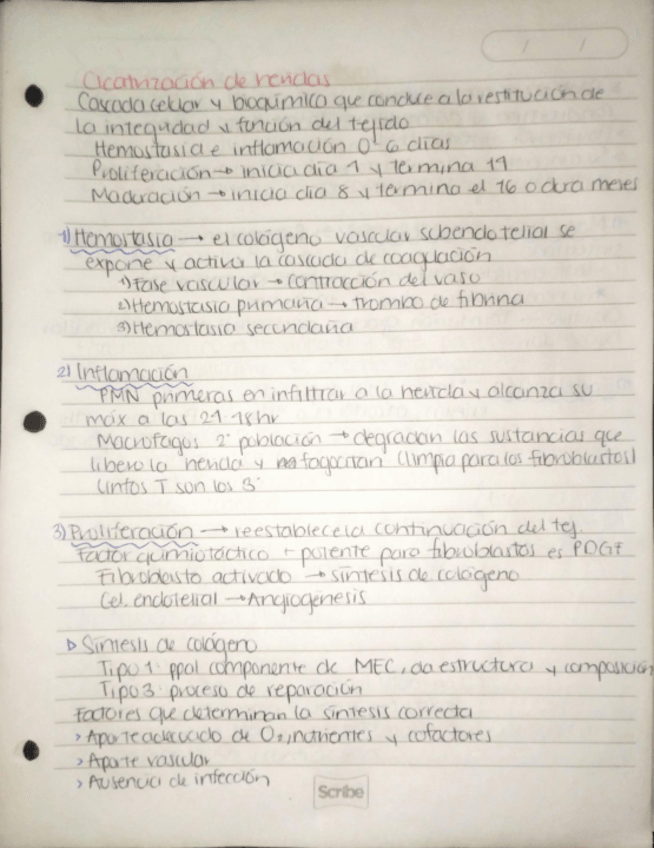 / /
Cicatrización de heridas
Cascada celular y bioquímica que conduce a la restitución de
la integridad y función del tejido
Hemostasia e inflamación 0-6 días
Proliferación → inicia día 4 y termina 14
Maduración → inicia día 8 y termina el 16 o dura meses
1) Hemostasia → el colágeno vascular subendotelial se
expone y activa la cascada de coagulación
1) Fase vascular → contracción del vaso
2) Hemostasia primaria → trombo de fibrina
3) Hemostasia secundaria
2) Inflamación
PMN primeras en infiltrar a la herida y alcanza su
máx a las 24-48hr
Macrófagos 2ª población → degradan las sustancias que
libero la herida y fagocitan (limpia para los fibroblastos)
Linfos T son los 3º
3) Proliferación → reestablece la continuación del tej.
Factor quimiotáctico + potente para fibroblastos es PDGF
Fibroblasto activado → síntesis de colágeno
Cel. endotelial → Angiogénesis
▷ Síntesis de colágeno
Tipo 1: ppal componente de MEC, da estructura y composición
Tipo 3: proceso de reparación
Factores que determinan la síntesis correcta
> Aporte adecuado de O2, nutrientes y cofactores
> Aporte vascular
> Ausencia de infección
Scribe